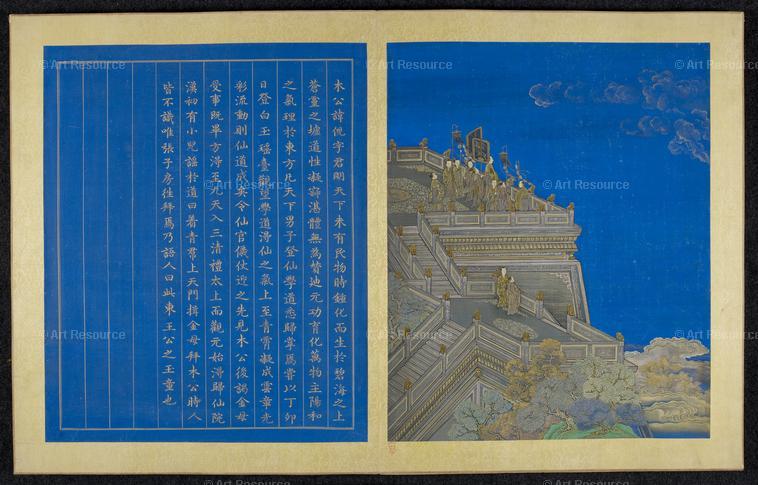 木公諱倪字君明天下未有民物時鍾化而生於碧海之上
蒼靈之墟道性凝寂湛體無為贊迪元功育化萬物主陽和
之氣理於東方凡天下男子登仙學道悉歸掌焉嘗以丁卯
日登白玉瑤臺觀望學道得仙之氣上至青霄凝成雲章光
彩流動則仙道成矣令仙官儀仗迎之先見木公後謁金母
受事既畢方得至九天入三清禮太上而觀元始得歸仙院
漢初有小兒謠於道曰着青帬上天門揖金母拜木公時人
皆不識唯張子房往拜焉乃語人曰此東王公之玉童也
© Art Resource
© Art Resource
© Art Resource
© Art Resource
© Art Resource
© Art Resource
© Art Resource
© Art Resource
© Art Resource
© Art Resource
© Art Resource
© Art Resource